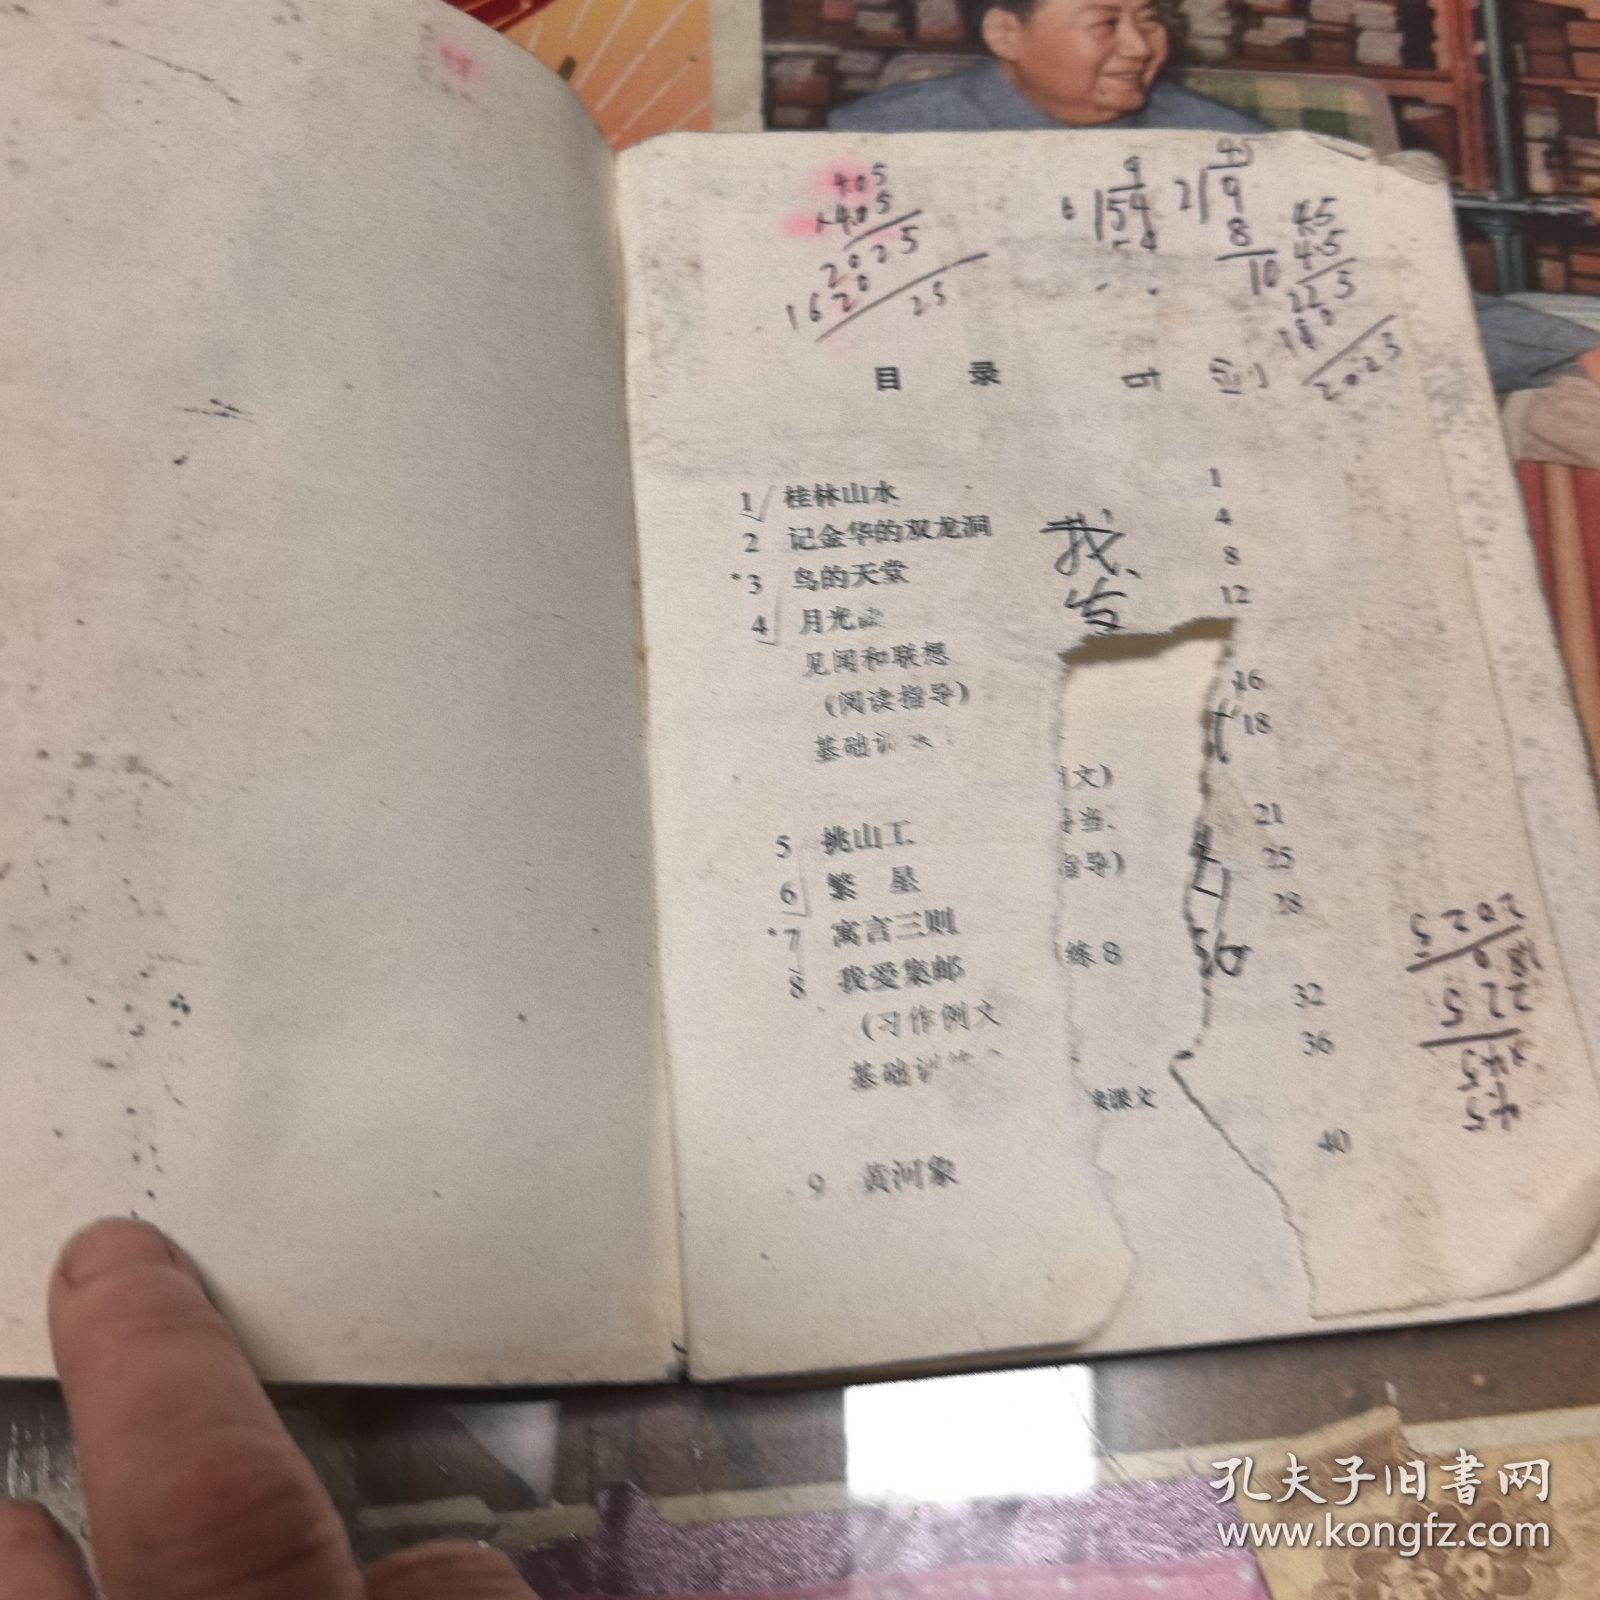 405
×405
2025
1620
25
9
6 154
54
45
2 9
8
10
45
45
225
180
2025
目 录
1 桂林山水 1
2 记金华的双龙洞 4
*3 鸟的天堂 8
4 月光 12
我
发
见闻和联想
(阅读指导) 16
基础训 18
文)
5 挑山工 21
当
6 繁 星 25
指导)
*7 寓言三则 28
8 我爱集邮
练8
(习作例文 32
基础训 36
课文
9 黄河象 40
45
×45
225
180
2025
孔夫子旧书网
www.kongfz.com